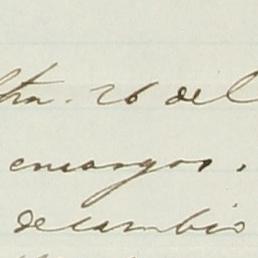 ltra. 26 del
encargos,
de cambio